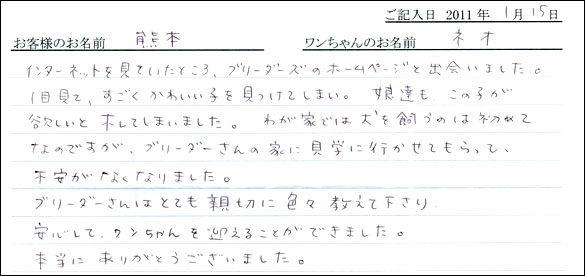 ご記入日 2011年 1月 15日
お客様のお名前 熊本 ワンちゃんのお名前 ネオ
インターネットを見ていたところ、ブリーダーズのホームページと出会いました。
1目見て、すごくかわいい子を見つけてしまい。娘達も、この子が
欲しいと ホしてしまいました。 わが家では犬を飼うのは初めて
なのですが、ブリーダーさんの家に見学に行かせてもらって、
不安がなくなりました。
ブリーダーさんはとても親切に色々教えて下さり
安心して、ワンちゃんを迎えることができました。
本当にありがとうございました。